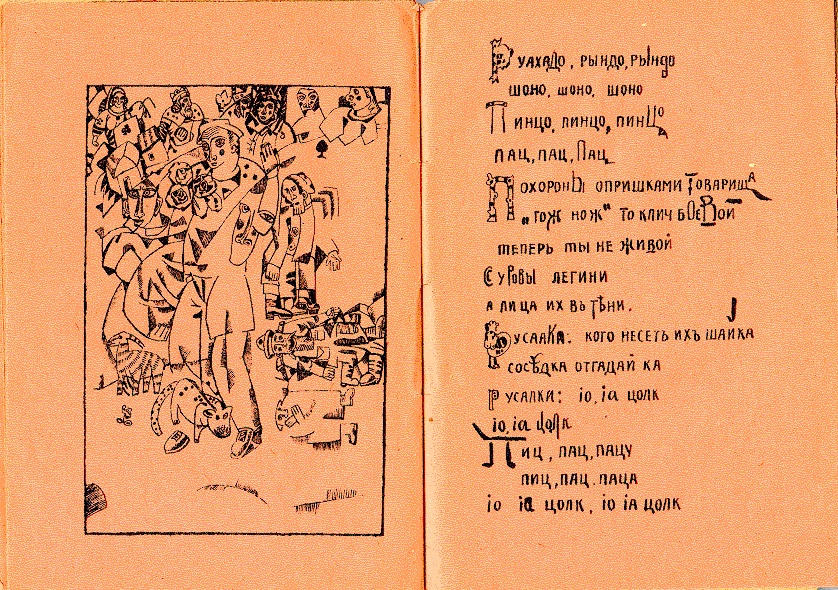 Руахадо, рындо, рындо
шоно, шоно, шоно
Пинцо, пинцо, пинцо
пац, пац, пац
Похороны опришками товарища
„гож нож“ то клич боевой
теперь ты не живой
Суровы легини
а лица их вь тѣни.
Русалка: кого несеть ихъ шайка
сосѣдка отгадай ка
русалки: iо, iа цолк
iо, iа цолк
Пиц, пац, пацу
пиц, пац. паца
iо iа цолк, iо iа цолк